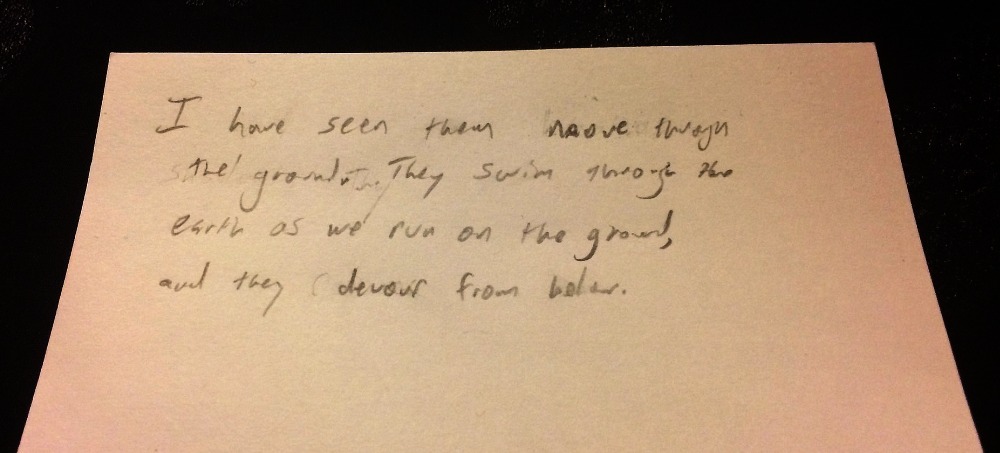 I have seen them move through
the ground. They swim through the
earth as we run on the ground,
and they devour from below.